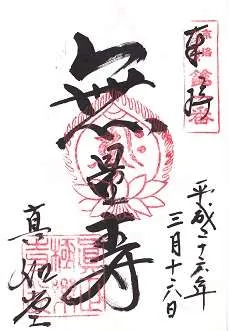 奉拝
平成二十六年
三月十六日
無量寿
真如堂